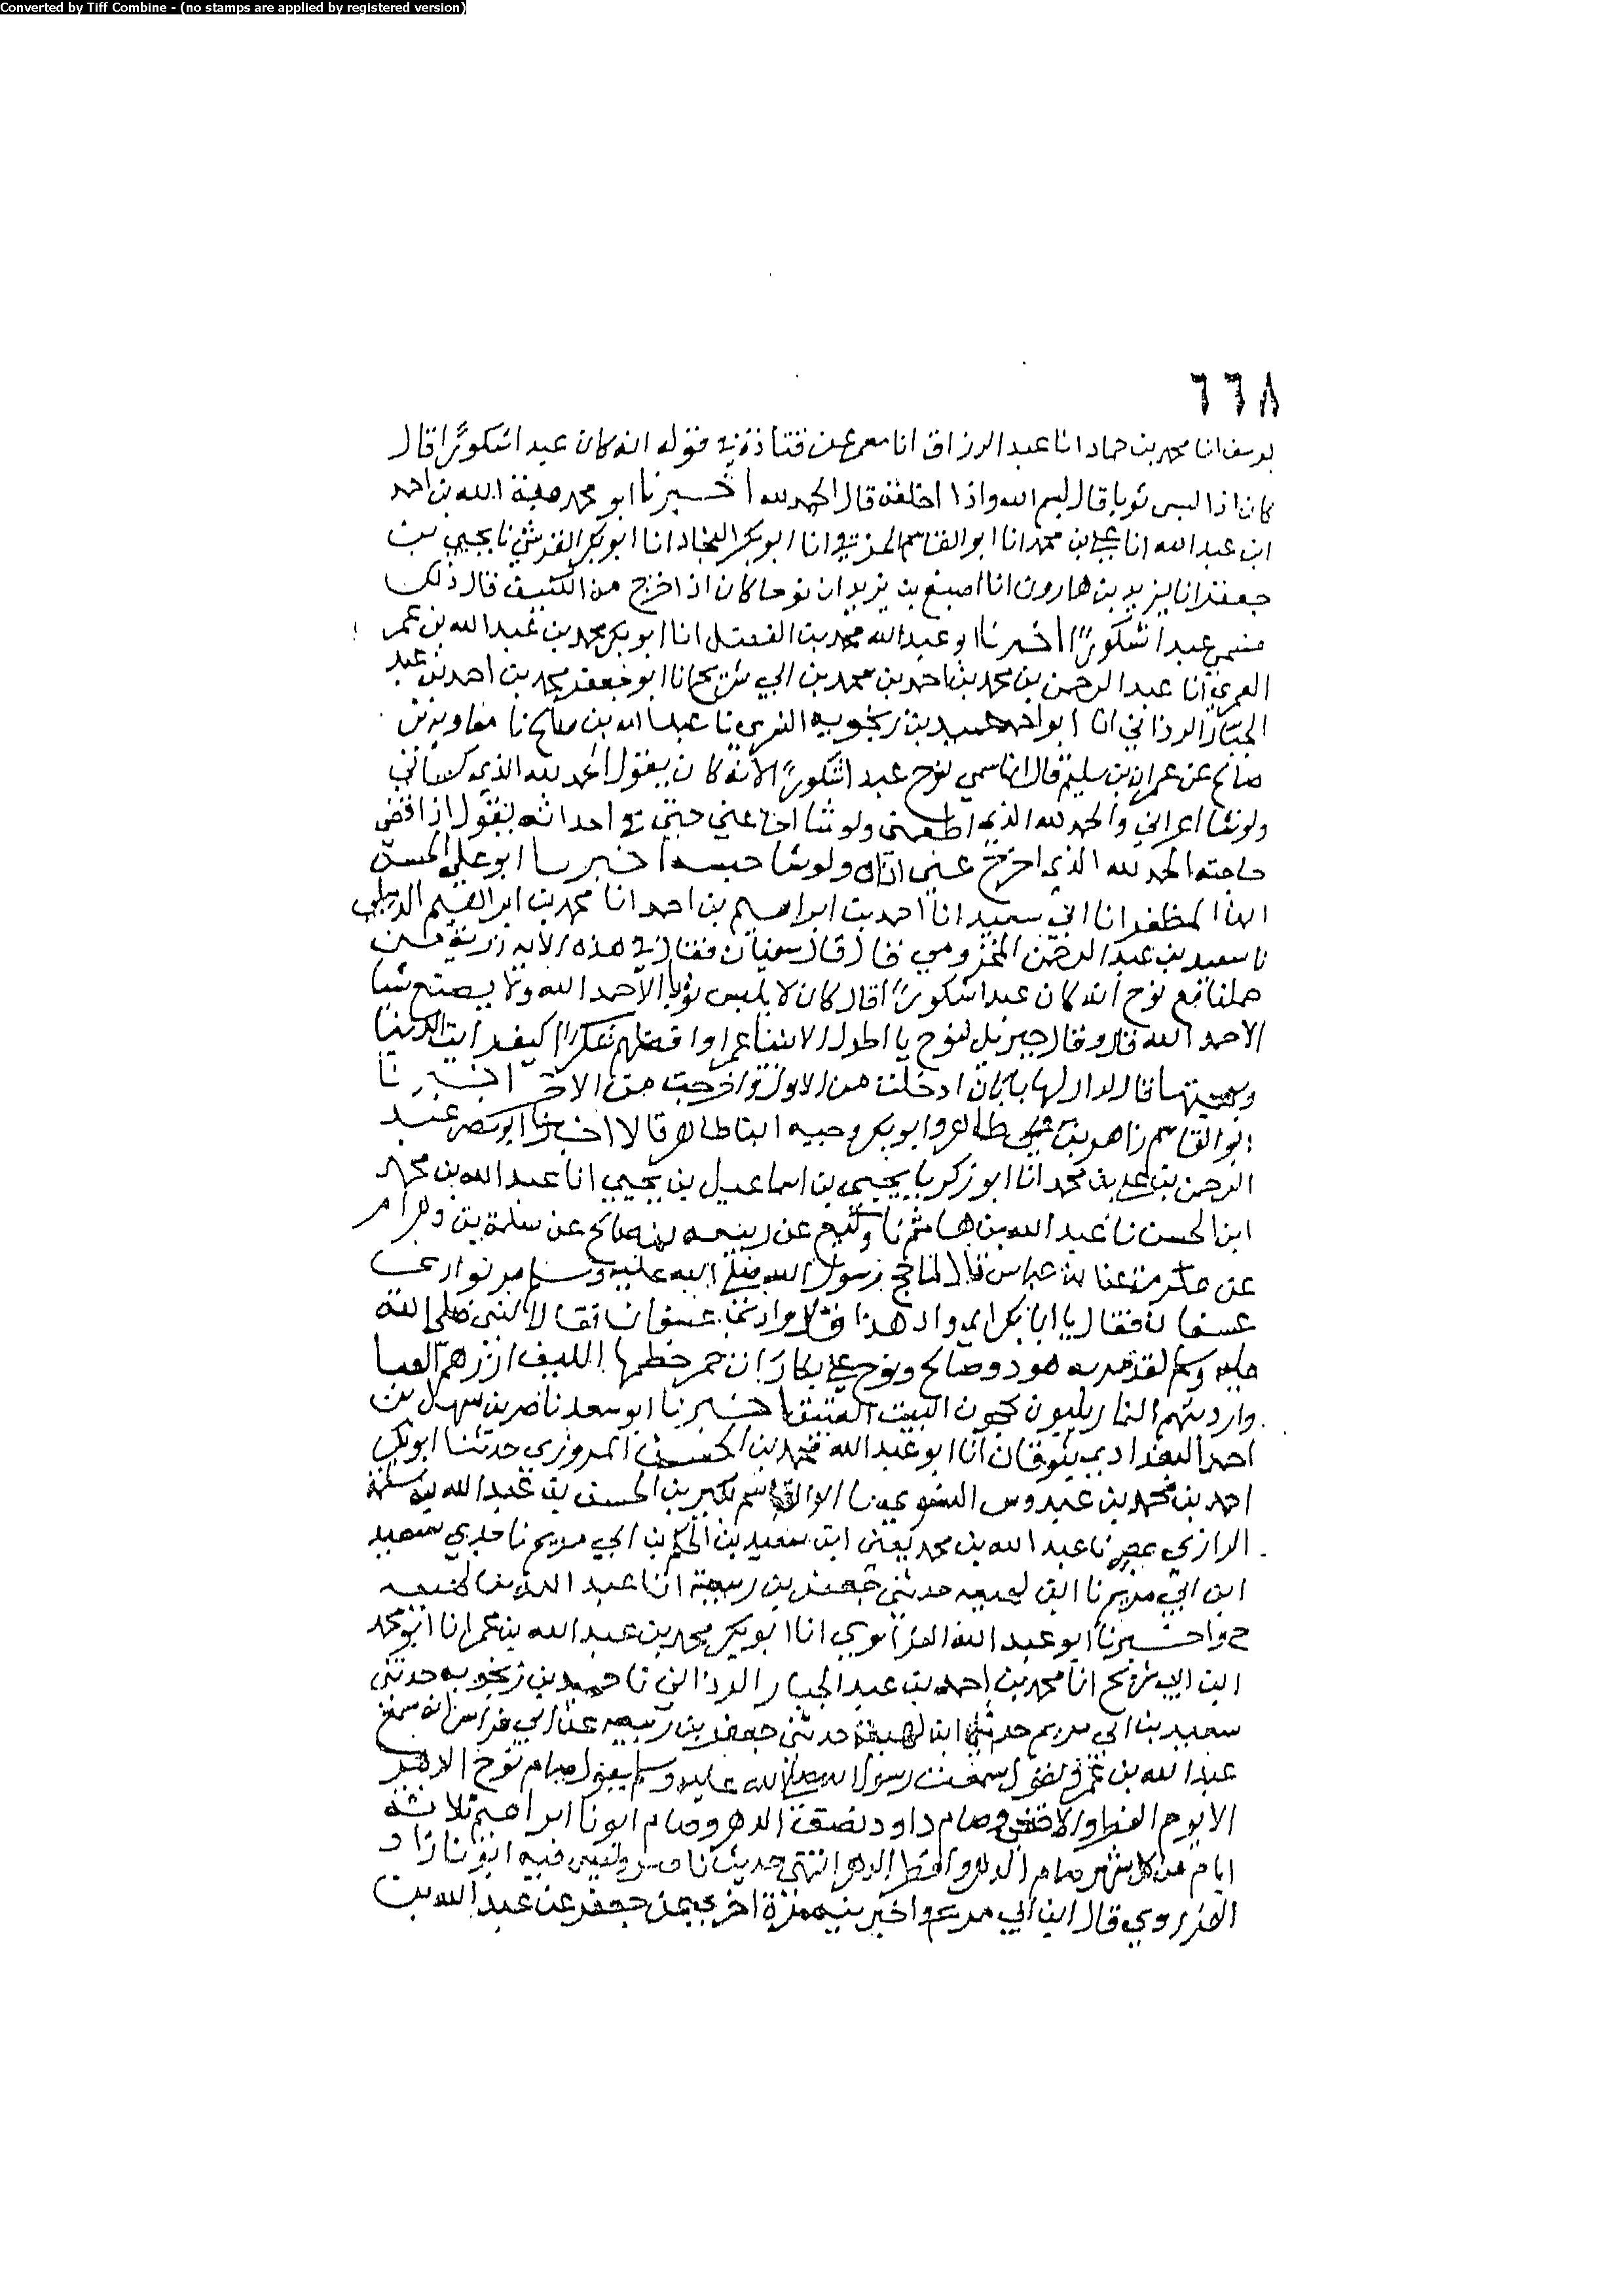 Converted by Tiff Combine - (no stamps are applied by registered version)
٦٦٨
يوسف انا محمد بن حماد انا عبد الرزاق انا معمر عن قتادة في قوله انه كان عبدا شكورًا قال
كان اذا لبس ثوبا قال بسم الله واذا اخلقه قال الحمد لله اخبرنا ابو محمد هبة الله بن احمد
ابن عبد الله انا علي بن محمد انا ابو القاسم انا ابو بكر النجاد انا ابو بكر القرشي نا يحيى بن
جعفر انا يزيد بن هارون انا اصبغ بن يزيد ان نوحا كان اذا خرج من الكنيف قال ذلك
فسمي عبدا شكورًا اخبرنا ابو عبد الله محمد بن الفضل انا ابو بكر محمد بن عبد الله بن عمر
العمري انا عبد الرحمن بن محمد بن احمد بن محمد بن ابي شريح انا ابو جعفر محمد بن احمد بن عبد
الجبار الرذاني انا ابو احمد حميد بن زنجويه نا عبد الله بن صالح نا معاوية بن
صالح عن عمران بن سليم قال انما سمي نوح عبدا شكورًا لانه كان يقول الحمد لله الذي كساني
ولو شا اعراني والحمد لله الذي اطعمني ولو شا اجاعني حتى في احداثه يقول اذا قضى
حاجته الحمد لله الذي اخرج عني اذاه ولو شا حبسه اخبرنا ابو علي الحسن
ابن المظفر انا ابي سعيد انا احمد بن ابراهيم بن احمد انا محمد بن ابراهيم الديبلي
نا سعيد بن عبد الرحمن المخزومي قال قال سفيان فقال في هذه الاية ذرية من
حملنا مع نوح انه كان عبدا شكورًا قال كان لا يلبس ثوبا الا حمد الله ولا يصنع شيا
الا حمد الله قال وقال جبريل لنوح يا اطول الانبيا عمرا وافضلهم شكرا كيف رايت الدنيا
قال كدار لها بابان ادخلت من الاول واخرجت من الاخر اخبرنا
ابو القاسم زاهر بن طاهر وابو بكر وجيه ابنا طاهر قالا اخبرنا ابو نصر عبد
الرحمن بن علي بن محمد انا ابو زكريا يحيى بن اسماعيل بن يحيى انا عبد الله بن محمد
ابن الحسن نا عبد الله بن هاشم نا وكيع عن زمعة بن صالح عن سلمة بن وهرام
عن عكرمة عن ابن عباس قال لما حج رسول الله صلى الله عليه وسلم مر بوادي
عسفان فقال يا ابا بكر اي واد هذا قال وادي عسفان فقال النبي صلى الله
عليه وسلم لقد مر به هود وصالح ونوح على بكارات حمر خطمها الليف ازرهم العبا
وارديتهم النمار يلبون يحجون البيت العتيق اخبرنا ابو سعد ناصر بن سهل بن
احمد البغدادي بنوقان انا ابو عبد الله محمد بن الحسين المروزي حدثنا ابو بكر
احمد بن محمد بن عبدوس النسوي نا ابو القاسم بكير بن الحسن بن عبد الله بن سلمة
الرازي بمصر نا عبد الله بن محمد يعني ابن سعيد بن الحكم بن ابي مريم نا جدي سعيد
ابن ابي مريم نا ابن لهيعة حدثني جعفر بن ربيعة انا عبد الله بن لهيعة
ح واخبرنا ابو عبد الله الفراوي انا ابو بكر محمد بن عبد الله بن عمر انا ابو محمد
ابن ابي شريح انا محمد بن احمد بن عبد الجبار الرذاني نا حميد بن زنجويه حدثني
سعيد بن ابي مريم حدثني ابن لهيعة حدثني جعفر بن ربيعة عن ابي فراس انه سمع
عبد الله بن عمرو يقول سمعت رسول الله صلى الله عليه وسلم يقول صام نوح الدهر
الا يوم الفطر والاضحى وصام داود نصف الدهر وصام ابونا ابراهيم ثلاثة
ايام من كل شهر صام الدهر وافطر الدهر انتهى حديث ناصر وليس فيه ابونا زاد
الفراوي قال ابن ابي مريم واخبرنيه مرة اخرى عن جعفر عن عبد الله بن